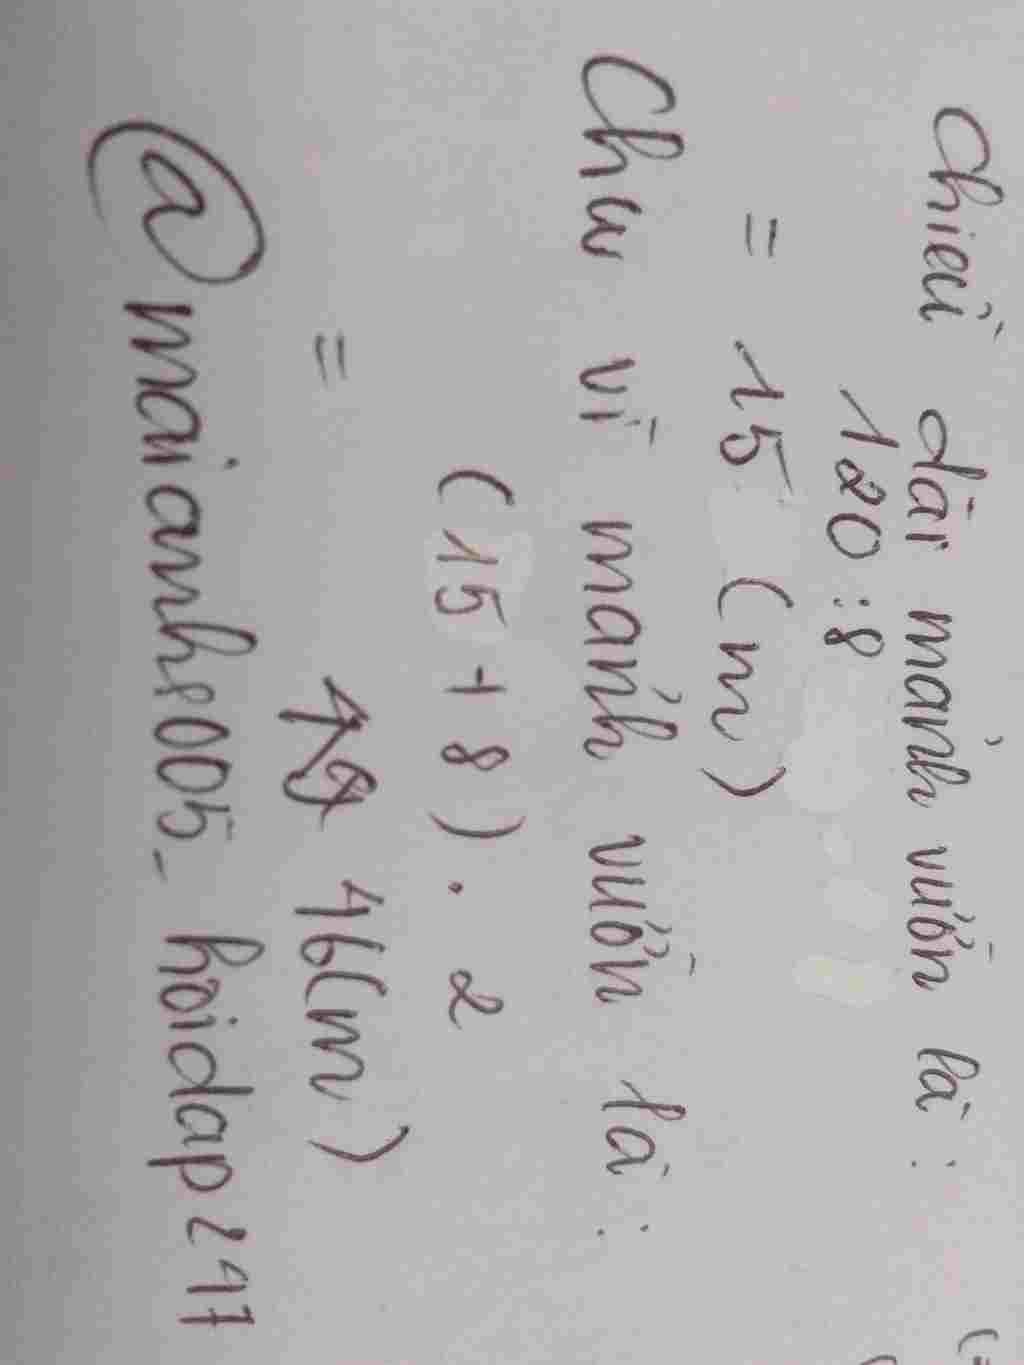 Chiều dài mảnh vườn là :
120 : 8
= 15 (m)
Chu vi mảnh vườn là :
(15 + 8) . 2
= 46(m)
@maianh8005_hoidap247